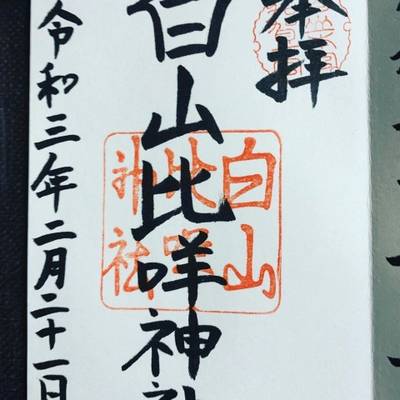 奉拝
白山比咩神社
令和三年二月二十一日
白山
比咩
神社